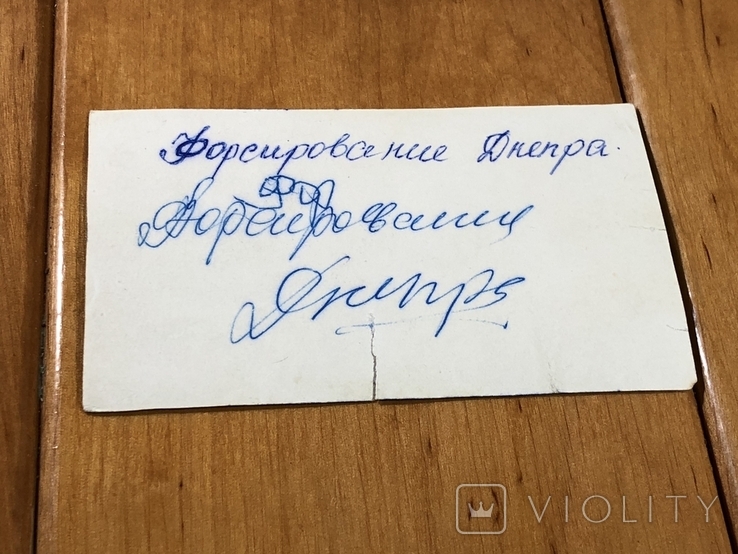 Форсирование Днепра.
Форсирование
Днепра
VIOLITY